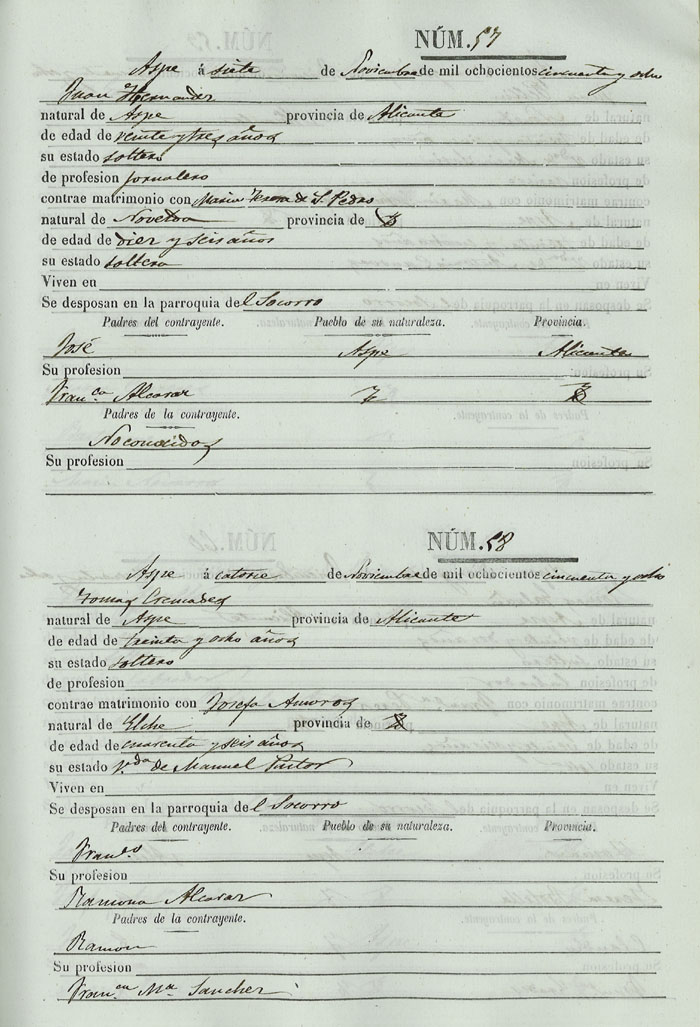 NÚM. 57
Aspe á siete de Noviembre de mil ochocientos cincuenta y ocho
Juan Hernandez
natural de Aspe provincia de Alicante
de edad de veinte y tres años
su estado soltero
de profesion jornalero
contrae matrimonio con Maria Teresa de S. Pedro
natural de Novelda provincia de
de edad de diez y seis años
su estado soltera
Viven en
Se desposan en la parroquia del Socorro
Padres del contrayente. Pueblo de su naturaleza. Provincia.
José Aspe Alicante
Su profesion
Fran.ca Alcaraz
Padres de la contrayente.
No conocidos
Su profesion
NÚM. 58
Aspe á catorce de Noviembre de mil ochocientos cincuenta y ocho
Tomas Cremades
natural de Aspe provincia de Alicante
de edad de treinta y ocho años
su estado soltero
de profesion
contrae matrimonio con Josefa Amoros
natural de Elche provincia de
de edad de cuarenta y seis años
su estado V.da de Manuel Pastor
Viven en
Se desposan en la parroquia del Socorro
Padres del contrayente. Pueblo de su naturaleza. Provincia.
Fran.co
Su profesion
Ramona Alcaraz
Padres de la contrayente.
Ramon
Su profesion
Fran.ca M.a Sanchez